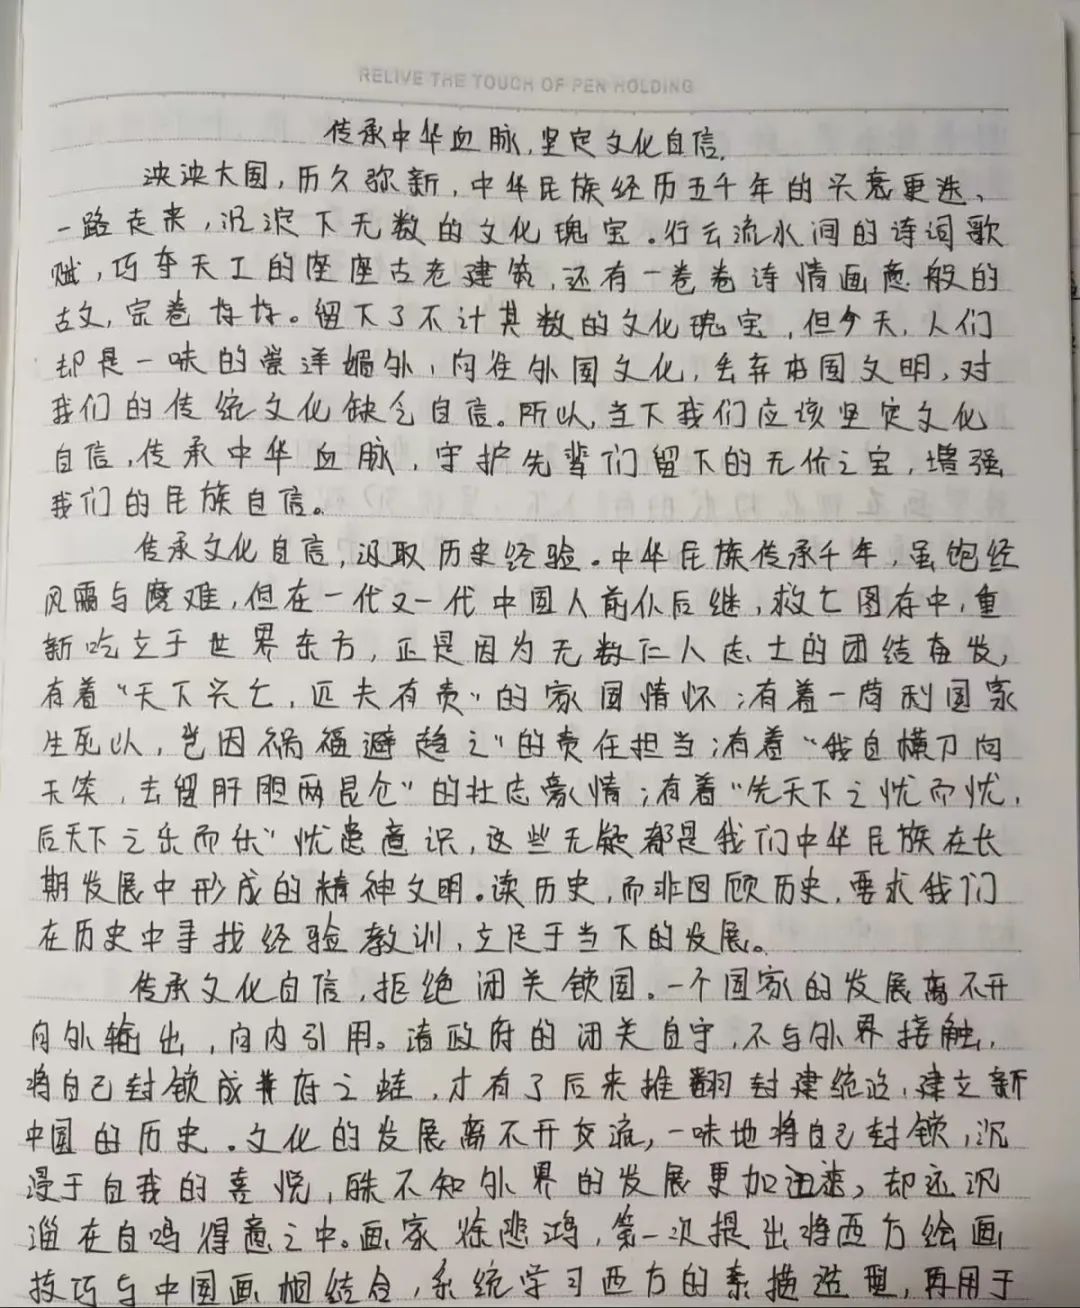 RELIVE THE TOUCH OF PEN HOLDING
传承中华血脉,坚定文化自信.
泱泱大国,历久弥新,中华民族经历五千年的兴衰更迭、
一路走来,沉淀下无数的文化瑰宝。行云流水间的诗词歌
赋,巧夺天工的座座古老建筑,还有一卷卷诗情画意般的
古文,宗卷。留下了不计其数的文化瑰宝,但今天,人们
却是一味的崇洋媚外,向往外国文化,丢弃本国文明,对
我们的传统文化缺乏自信。所以,当下我们应该坚定文化
自信,传承中华血脉,守护先辈们留下的无价之宝,增强
我们的民族自信。
传承文化自信,汲取历史经验。中华民族传承千年,虽饱经
风霜与磨难,但在一代又一代中国人前仆后继,救亡图存中,重
新屹立于世界东方,正是因为无数仁人志士的团结奋发,
有着“天下兴亡,匹夫有责”的家国情怀;有着一苟利国家
生死以,岂因祸福避趋之”的责任担当;有着“我自横刀向
天笑,去留肝胆两昆仑”的壮志豪情;有着“先天下之忧而忧,
后天下之乐而乐”忧患意识,这些无疑都是我们中华民族在长
期发展中形成的精神文明。读历史,而非回顾历史,要求我们
在历史中寻找经验教训,立足于当下的发展。
传承文化自信,拒绝闭关锁国。一个国家的发展离不开
向外输出,向内引用。清政府的闭关自守,不与外界接触,
将自己封锁成井底之蛙,才有了后来推翻封建统治,建立新
中国的历史。文化的发展离不开交流,一味地将自己封锁,沉
浸于自我的喜悦,殊不知外界的发展更加迅速,却还沉
溺在自鸣得意之中。画家徐悲鸿,第一次提出将西方绘画
技巧与中国画相结合,系统学习西方的素描造型,再用于